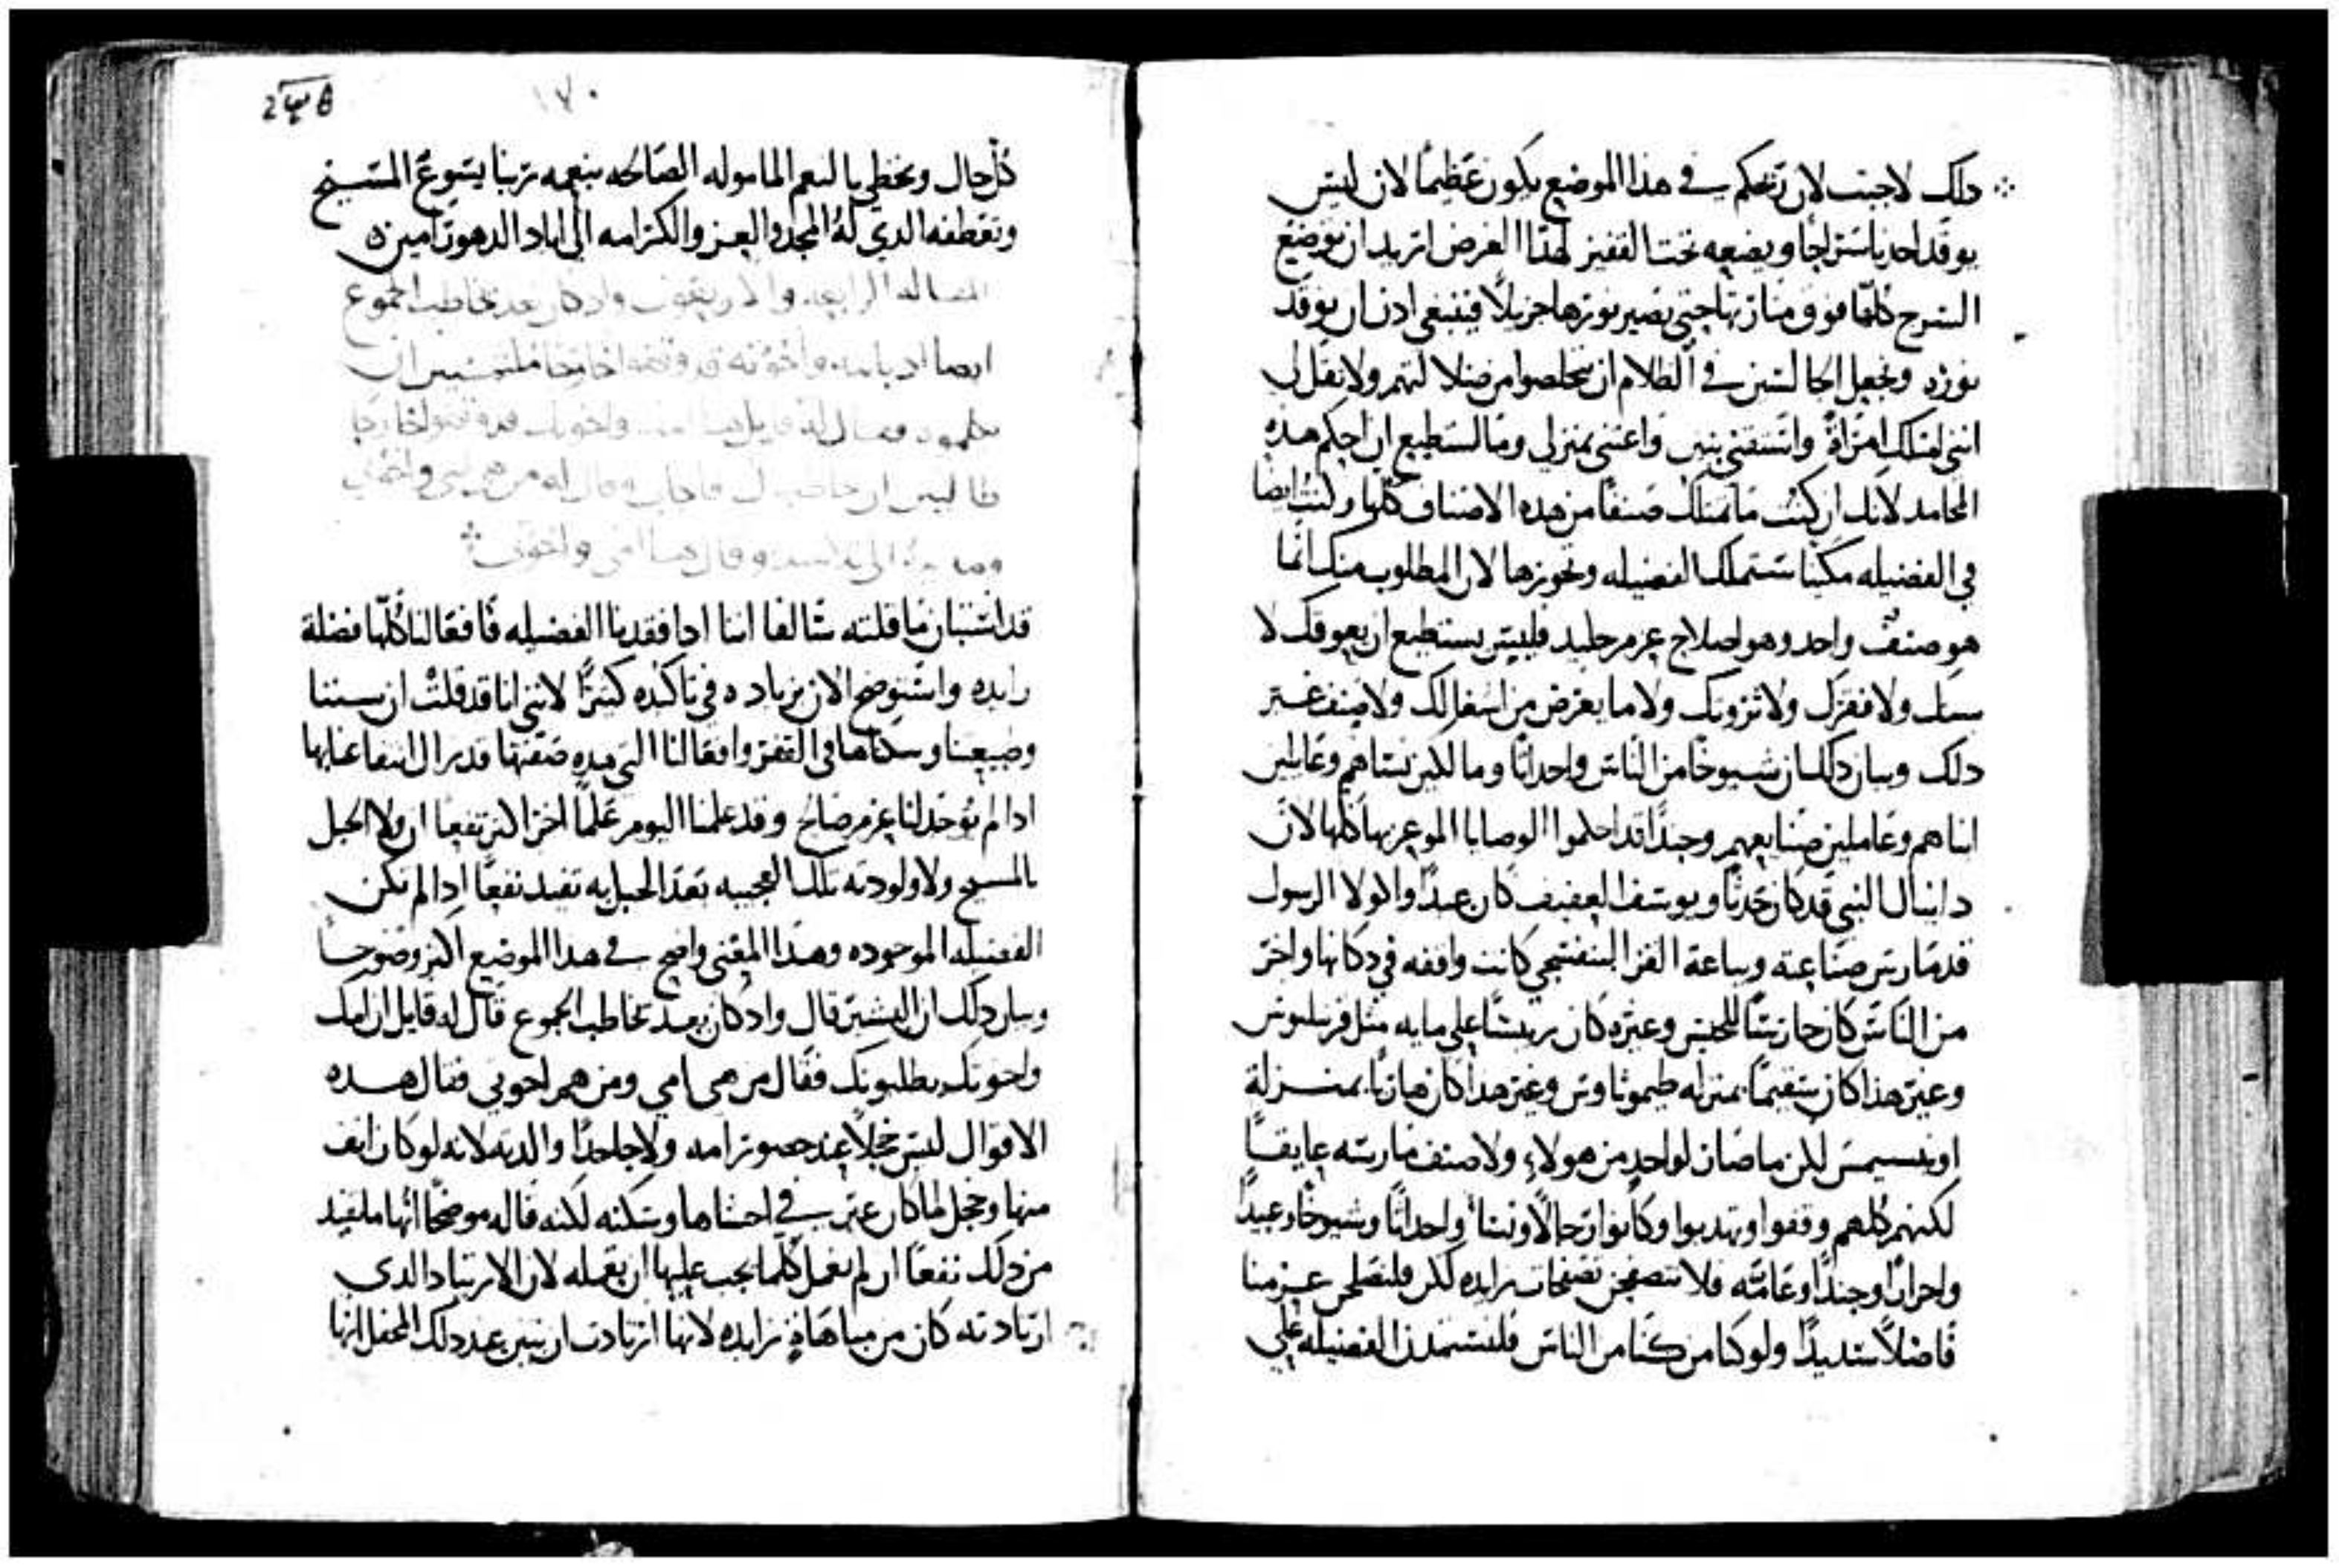 دلك لاجبت لان تحكم في هذا الموضع يكون عظيمًا لان ليس
يوقد احدنا سراجا ويضعه تحت القفيز لهذا الغرض اتريد ان توضع
السرج كلها فوق منارتها حتى يصير نورها جزيلاً فينبغي ادن ان يوقد
نوره ونجعل الجالسين في الظلام ان يتخلصوا من ضلالتهم ولا تقل لي
انني امتلك امراةً واستقني بنين واعتني بمنزلي وما استطيع ان احكم هذه
المحامد لانك ان كنت ما تمتلك صنفًا من هذه الاصناف كلها وكنت ايضا
في الفضيله مكينا ستمتلك الفضيله وتحوزها لان المطلوب منك انما
هو صنف واحد وهو اصلاح عزم جليد فليس يستطيع ان يعوقك لا
سنك ولا فقرك ولا ثروتك ولا ما يعرض من اشغالك ولا صنف غير
دلك وبيان دلك ان شيوخًا من الناس واحداثًا ومالكين نساهم وعايلين
ابناهم وعاملين صنايعهم وجندًا قد احكموا الوصايا الموعز بها كلها لان
دانيال النبي قد كان حدثًا ويوسف العفيف كان عبدًا واكولا الرسول
قد مارس صناعته وبياعة القز البنفسجي كانت واقفه في دكانها واخر
من الناس كان حارسًا للحبس وغيره كان رييسًا على مايه مثل قرنيليوس
وغير هذا كان سقيمًا بمنزله طيموثاوس وغير هذا كان هاربًا بمنزلة
اونيسيمس لكن ما صار لواحدٍ من هولاءِ ولا صنف مارسته عايقًا
لكنهم كلهم وقفوا وتهدبوا وكانوا رجالاً ونساً واحداثًا وشيوخًا وعبيدًا
واحرارًا وجندًا وعامّه فلا نتصفحن تصفحات زايده لكن فلنصلحن عزمنا
فاضلاً سديدًا ولو كنا من كنا من الناس فلنستمدن الفضيله على
١٧٠
كل حال ونحظي بالنعم الماموله الصالحه بنعمه ربنا يسوع المسيح
وتعطفه الدي له المجد والعز والكرامه الى اباد الدهور امين
المقاله الرابعه والاربعون واد كان بعد يخاطب الجموع
ايضا اد بامه واخوته قد وقفوا خارجًا ملتمسين ان
يكلموه فقال له قايل هدا امك واخوتك قد وقفوا خارجًا
طالبين ان يخاطبوك فاجاب وقال له من هي امي واخوتي
ومد يده الى تلاميده وقال هدا امي واخوتي
قد استبان ما قلته سالفا اننا ادا فقدنا الفضيله فافعالنا كلها فضلة
زايده واستوضح الان بزياده في تاكيده كثيرًا لانني انا قد قلت ان سننا
وطبيعتنا وسكناها في القفر وافعالنا التي هده صفتها قد يزال انتفاعنا بها
ادا لم يوجد لنا عزم صالح وقد علمنا اليوم علمًا اخر اكثر نفعا ان ولا الحبل
بالمسيح ولا ولودته تلك العجيبه بعد الحبل به تفيد نفعًا ادا لم تكن
الفضيله الموجوده وهدا المعنى واضح في هدا الموضع اكثر وضوحا
وبيان دلك ان البشير قال واد كان بعد يخاطب الجموع قال له قايل ان امك
واخوتك يطلبونك فقال من هي امي ومن هم اخوتي فقال هده
الاقوال ليس خجلاً عند حضور امه ولا جاحدًا والدته لانه لو كان انف
منها وخجل لما كان عبر في احشاها وسكنه لكنه قاله موضحًا انها ما تفيد
من دلك نفعًا ان لم تعمل كلما يجب عليها ان تعمله لان الارتياد الدي
ارتادته كان من مباهاةٍ زايده لانها ارتادت ان تبين عند دلك المحفل انها